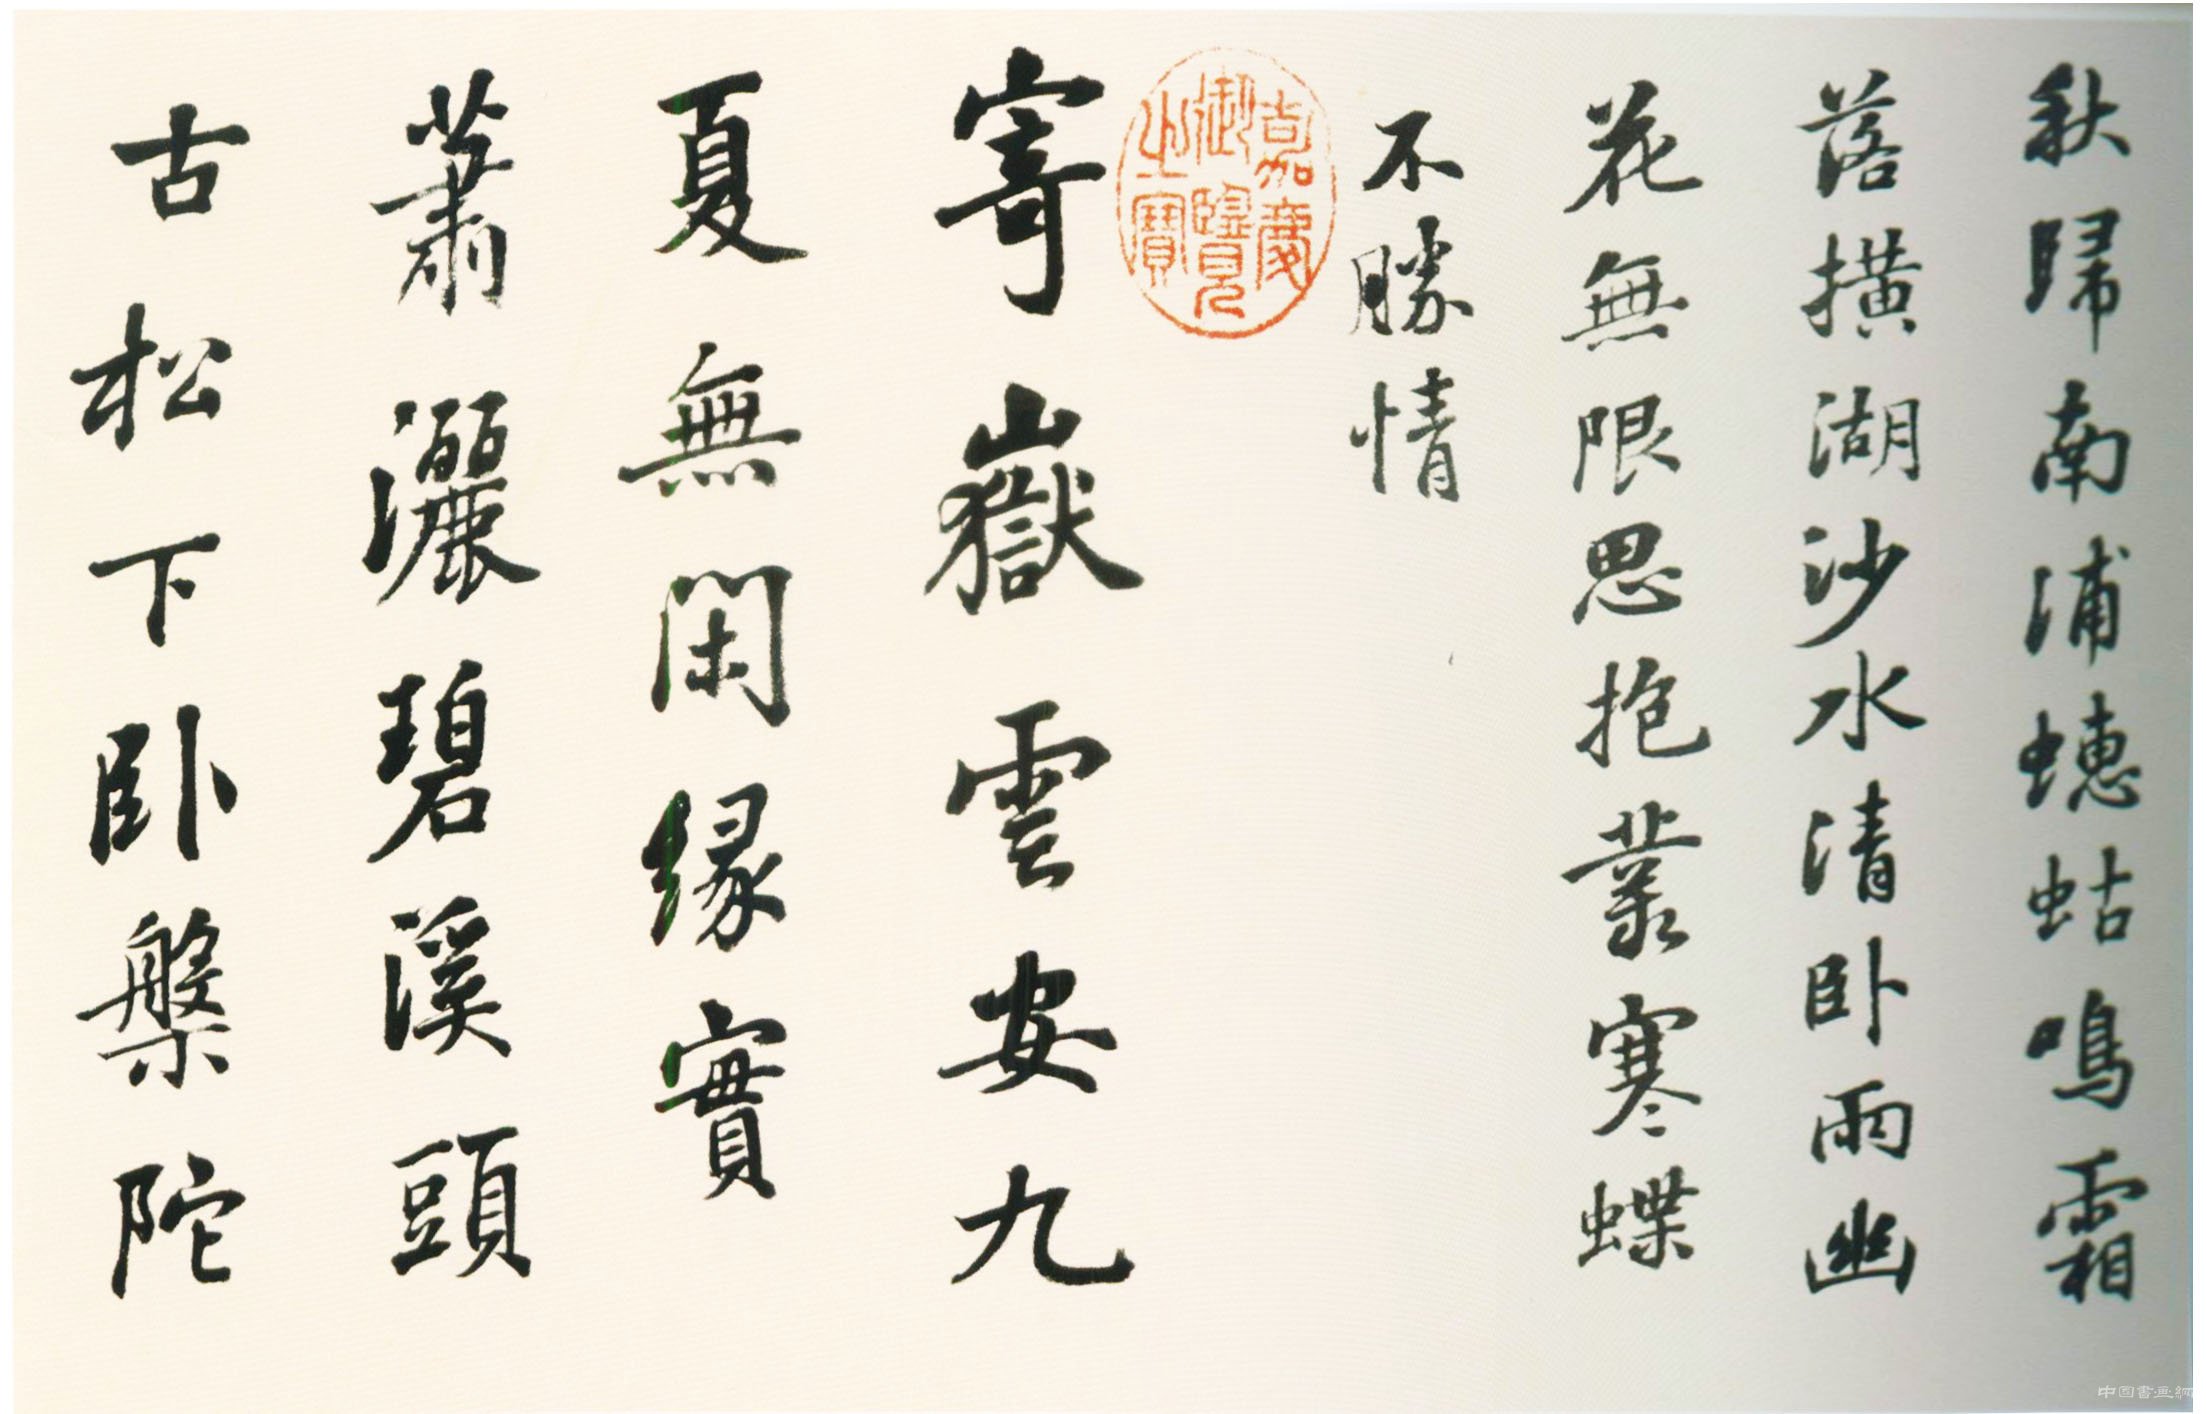 秋歸南浦蟪蛄鳴霜
落撗湖沙水清卧雨幽
花無限思抱叢寒蝶
不勝情
嘉慶
御覽
之寶
寄嶽雲安九
夏無閑緣實
蕭灑碧溪頭
古松下卧槃陀
中国書画網